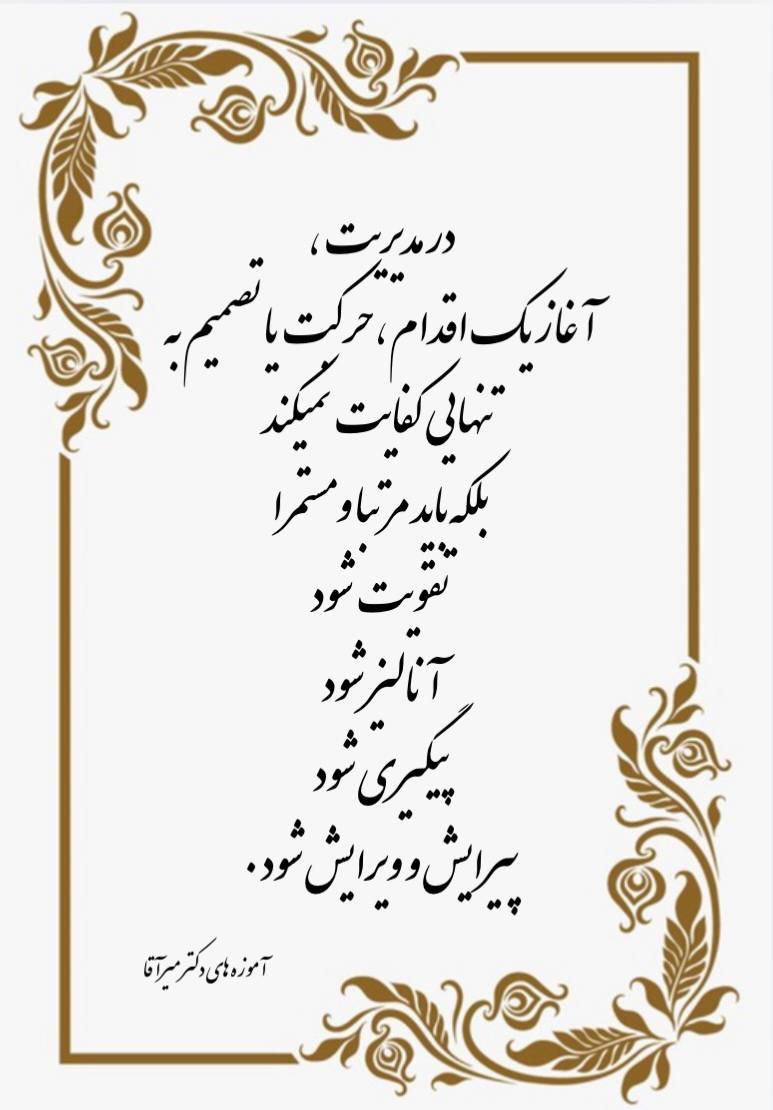 در مدیریت،
آغاز یک اقدام، حرکت یا تصمیم به
تنهایی کفایت نمیکند
بلکه باید مرتبا و مستمرا
تقویت شود
آنالیز شود
پیگیری شود
پیرایش و ویرایش شود.
آموزه های دکتر میرآقا